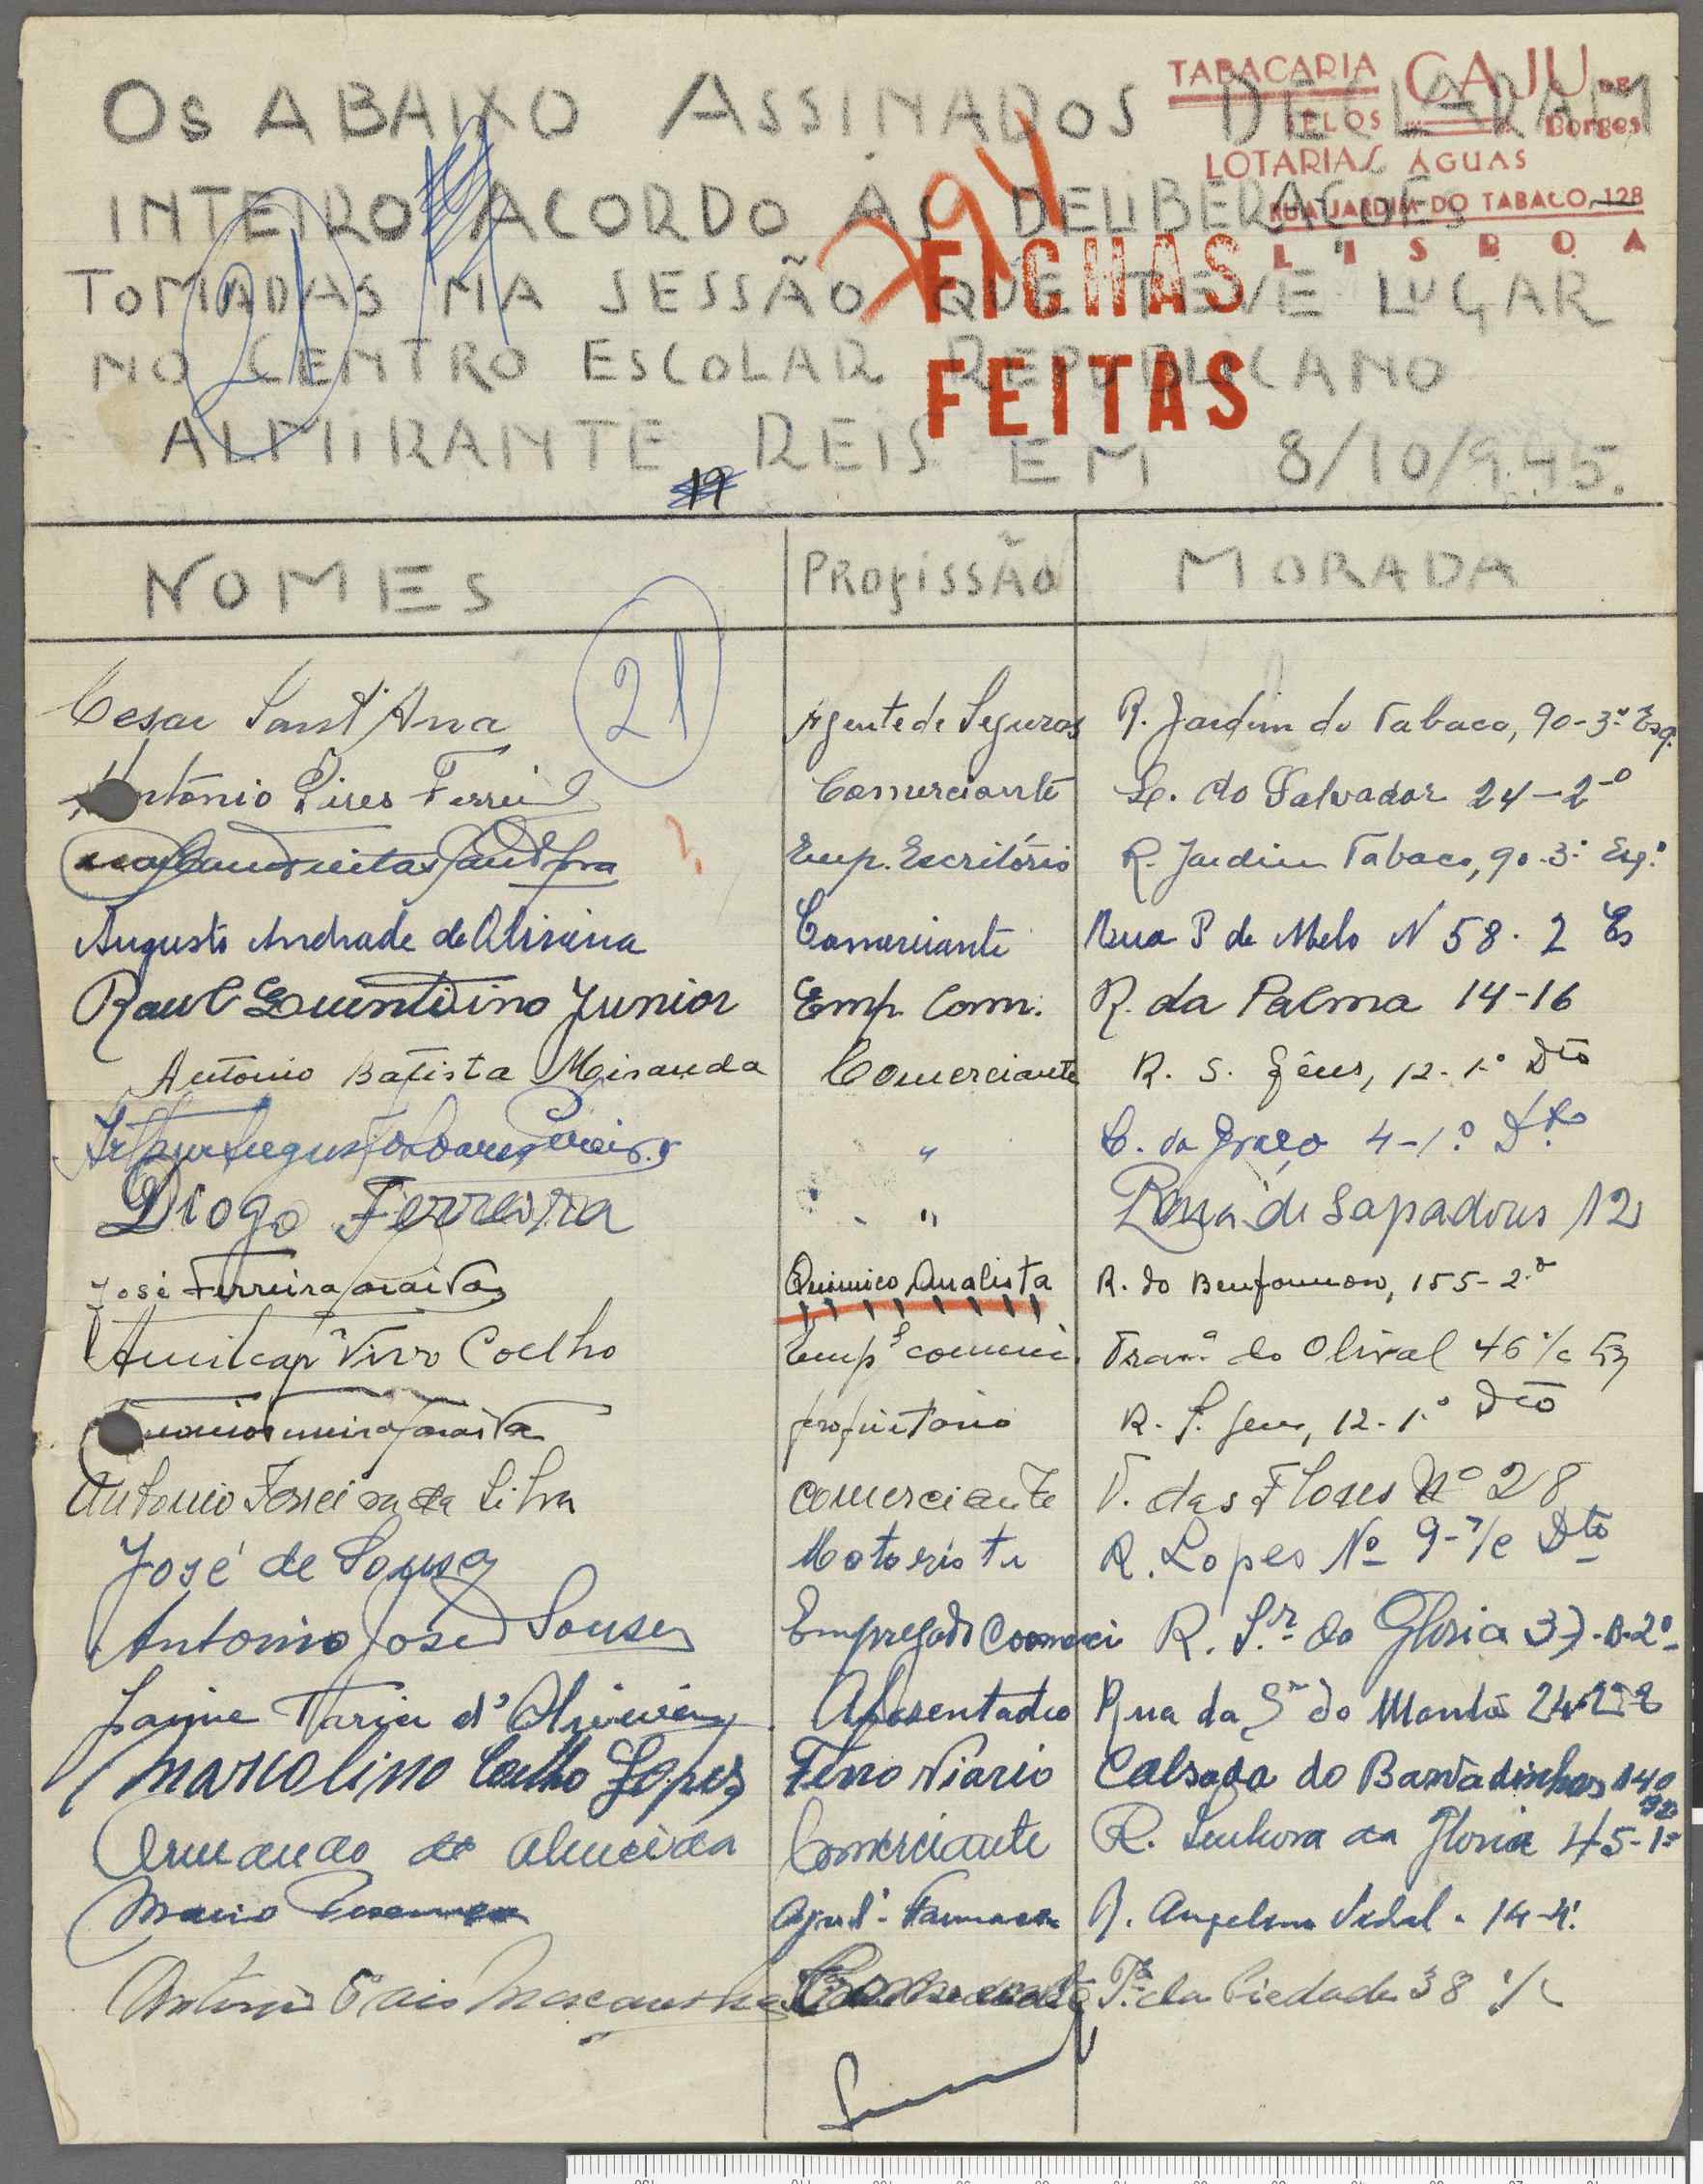 TABACARIA CAJU DE
SELOS Borges
LOTARIAS ÁGUAS
RUA JARDIM DO TABACO, 128
LISBOA
Os ABAIXO ASSINADOS DECLARAM
INTEIRO ACORDO ÀS DELIBERAÇÕES
TOMADAS NA SESSÃO QUE TEVE LUGAR
NO CENTRO ESCOLAR REPUBLICANO
ALMIRANTE REIS EM 8/10/945.
294
FICHAS
FEITAS
21
19
NOMES PROFISSÃO MORADA
21
Cesar Sant'Ana Agente de Seguros R. Jardim do Tabaco, 90-3º Esq.
António Pires Ferreira Comerciante L. do Salvador 24-2º
Emp. Escritório R. Jardim Tabaco, 90-3º Esqº
Augusto Andrade de Oliveira Comerciante Rua P de Melo N 58. 2 Es
Raul Quintino Junior Emp. Com. R. da Palma 14-16
António Batista Miranda Comerciante R. S. Gêns, 12-1º Dto
Artur Augusto Soares Pereira " C. da Graça 4-1º Dto
Diogo Ferreira " Rua de Sapadores 12
José Ferreira Químico Analista R. do Benformoso, 155-2º
Amilcar Viro Coelho Empº comerci. Travª do Olival 46 r/c
proprietario R. S. Gens, 12-1º Dto
Antonio Ferreira da Silva comerciante T. das Flores Nº 28
José de Sousa Motorista R. Lopes Nº 9-r/c Dto
Antonio José Sousa Empregado Comerci R. Sr.ª da Gloria 37-B-2º
Jaime Maria d'Oliveira Aposentado Rua da Srª do Monte 24-2º
Marcolino Coelho Lopes Ferroviario Calsada do Barbadinhos 140
Armando de Almeida Comerciante R. Senhora da Gloria 45-1º
Mario Ajudº Farmacia R. Angelina Vidal - 14-4º
António Pais Mascarenhas Comerciante Tª da Piedade 38 r/c